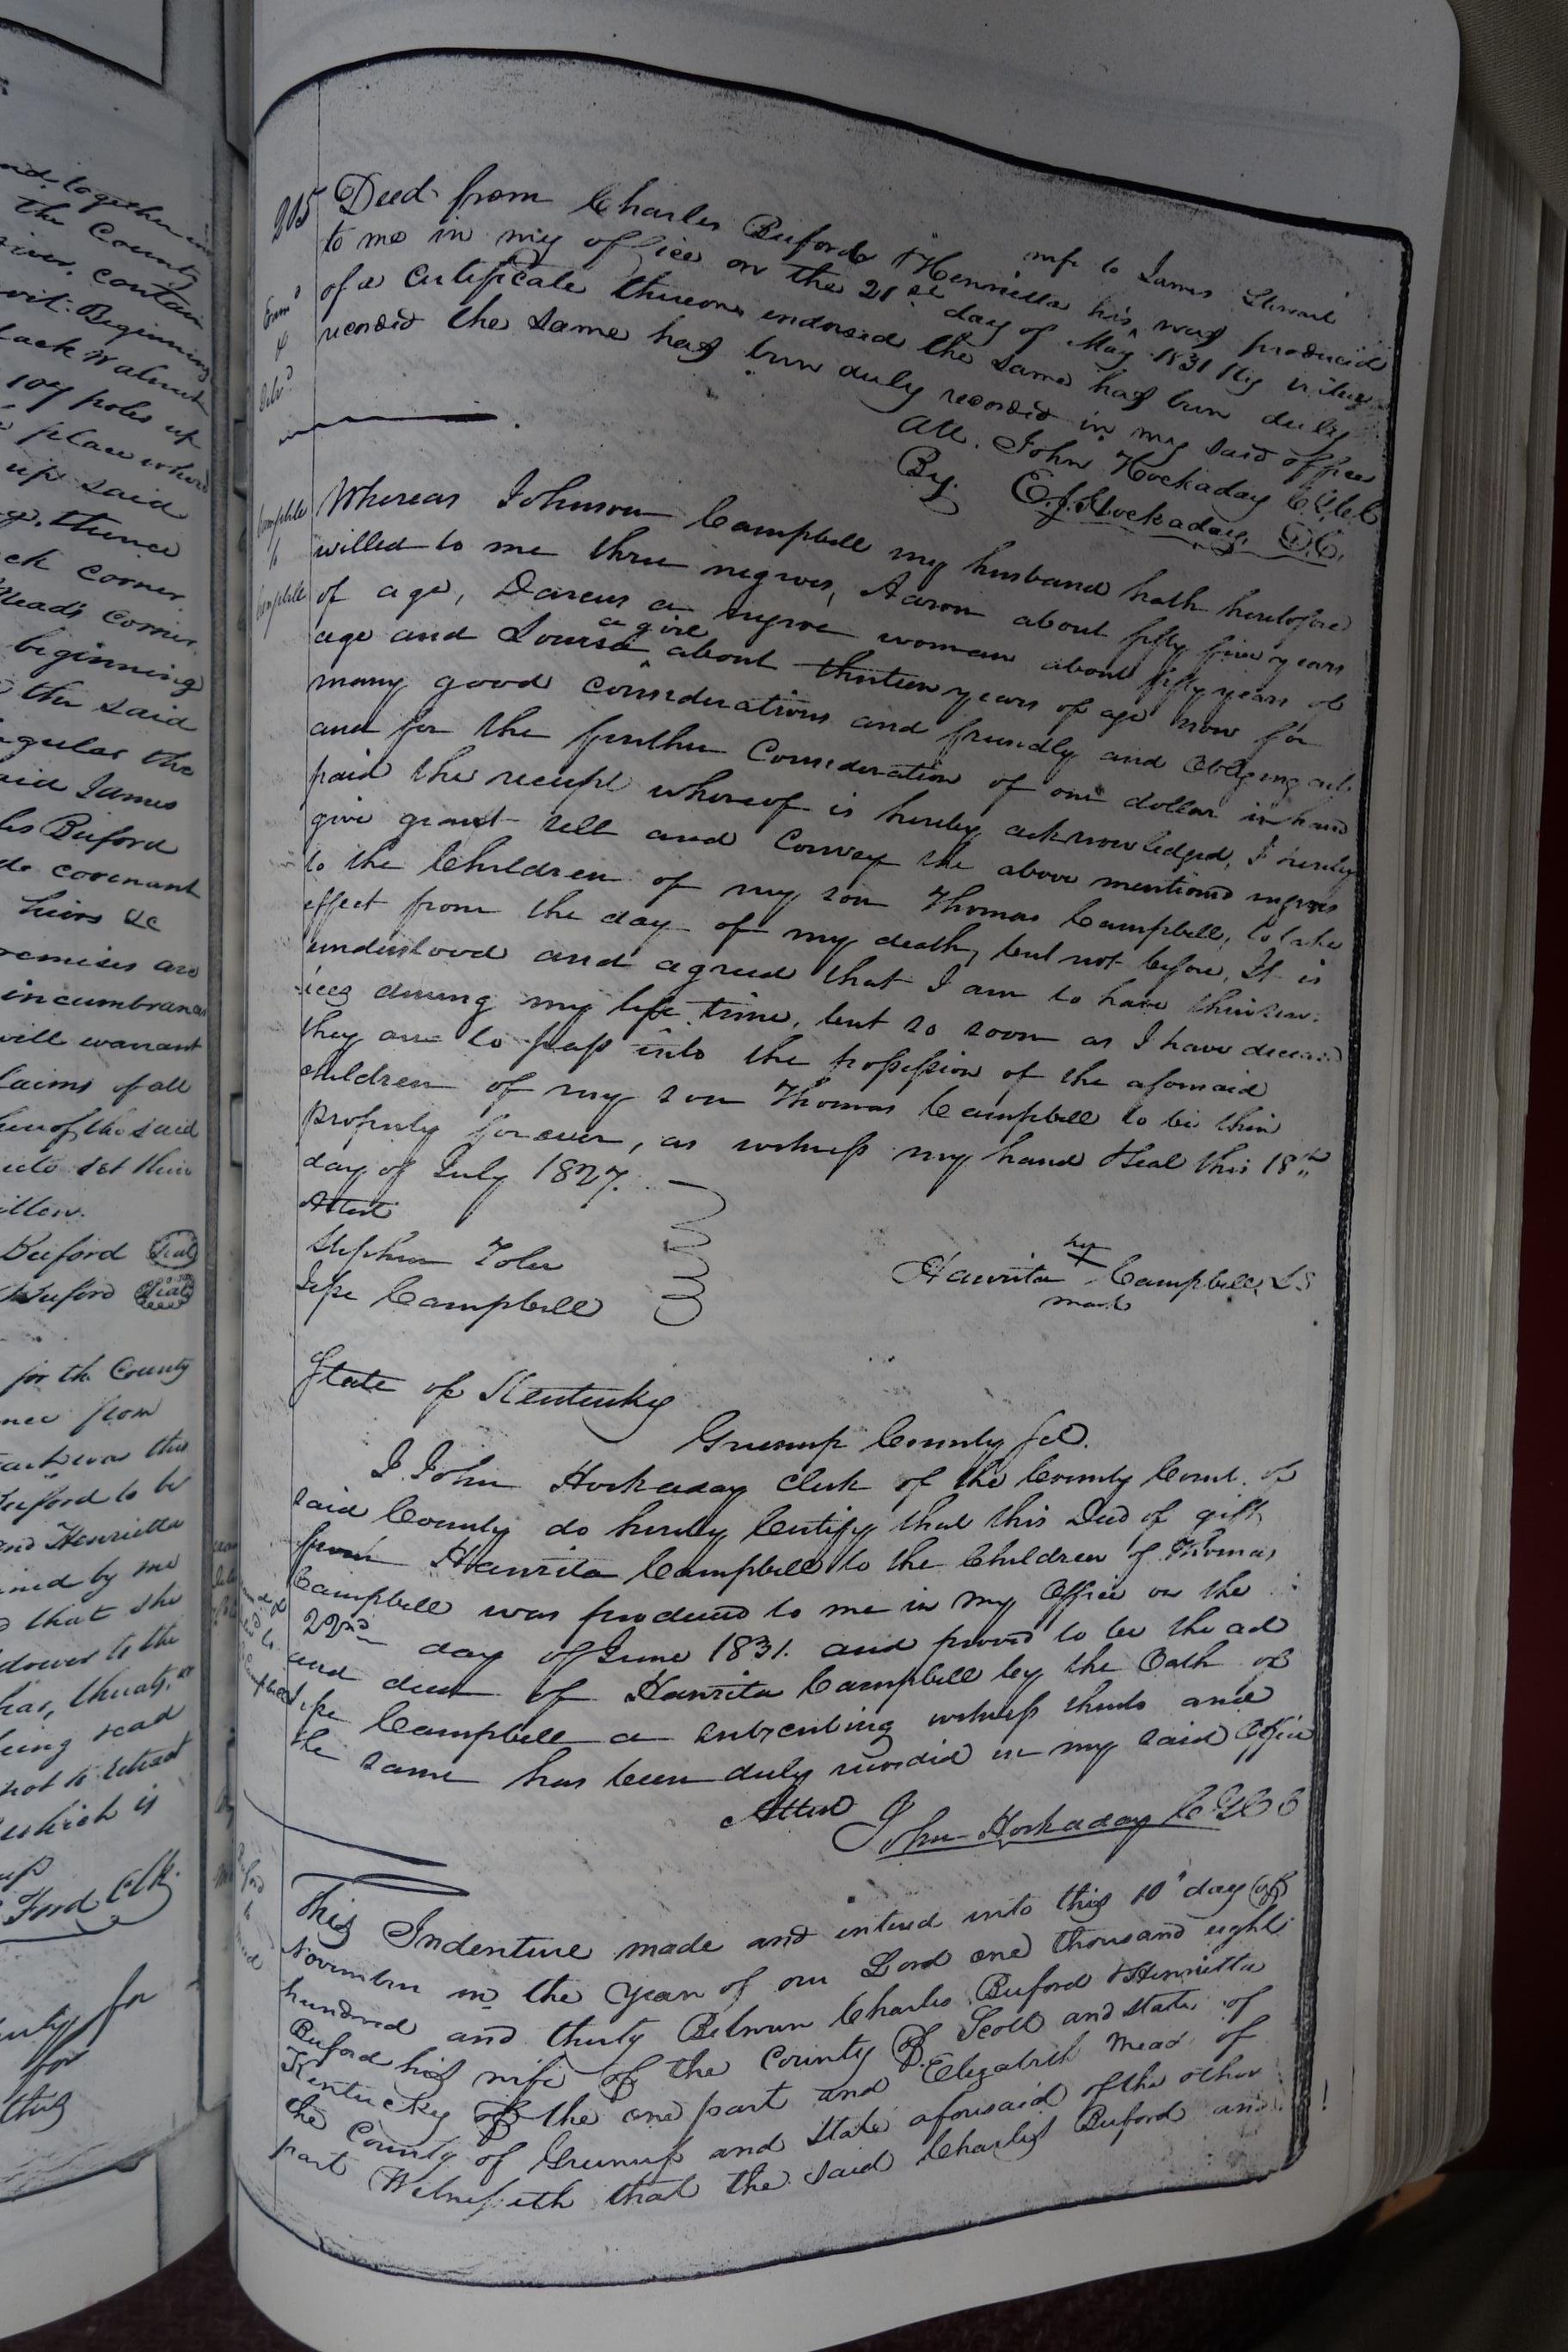 and together in
the County
river, contain
wit: Beginning
lack Walnut
107 poles up
place where
up said
thence
ck corner
Mead's corner
beginning
the said
gular the
aid James
les Buford
do covenant
heirs &c
remises are
incumbrance
will warrant
laims of all
of the said
set their
itten.
Buford Seal
Buford Seal
for the County
nce from
this
Buford to be
and Henrietta
ined by me
that she
dower to the
has, threats, or
being read
not to retract
which is
Ford Clk.
for
for
205
Deed from Charles Buford & Henrietta his wife to James Stuart
was produced
to me in my office on the 21st day of May 1831 By virtue
of a Certificate thereon endorsed the same has been duly
recorded the same has been duly recorded in my said office
Att. John Hockaday C G C C
By. E. J. Hockaday, D.C.
Exam'd
&
Deliv'd
Campbell
to
Campbell
Whereas Johnson Campbell my husband hath heretofore
willed to me three negroes, Aaron about fifty five years
of age, Darcus a negroe woman about fifty years of
age and Louisa a girl about thirteen years of age now for
many good considerations and friendly and obligeing acts
and for the further Consideration of one dollar in hand
paid the receipt whereof is hereby acknowledged, I hereby
give grant sell and Convey the above mentioned negroes
to the Children of my son Thomas Campbell, to take
effect from the day of my death, but not before, It is
understood and agreed that I am to have their serv-
ices during my life time, but so soon as I have deceased
they are to pass into the possession of the aforesaid
children of my son Thomas Campbell to be their
property forever, as witness my hand & Seal this 18th
day of July 1827.
Attest
Stephen Toler
Jesse Campbell
Hawrita her X mark Campbell LS
State of Kentucky
Greenup County Sct.
I John Hockaday clerk of the County Court of
said County do hereby Certify that this Deed of gift
from Hawrita Campbell to the Children of Thomas
Campbell was produced to me in my Office on the
22nd day of June 1831. and proved to be the act
and deed of Hawrita Campbell by the Oath of
Jesse Campbell a subscribing witness thereto and
the same has been duly recorded in my said Office
Attest John Hockaday C G C C
Buford
to
Mead
This Indenture made and entered into this 10" day of
November in the year of our Lord one thousand eight
hundred and thirty Between Charles Buford & Henrietta
Buford his wife of the County of Scott and state of
Kentucky of the one part and Elizabeth Mead of
the County of Greenup and State aforesaid of the other
part Witnesseth that the said Charles Buford and